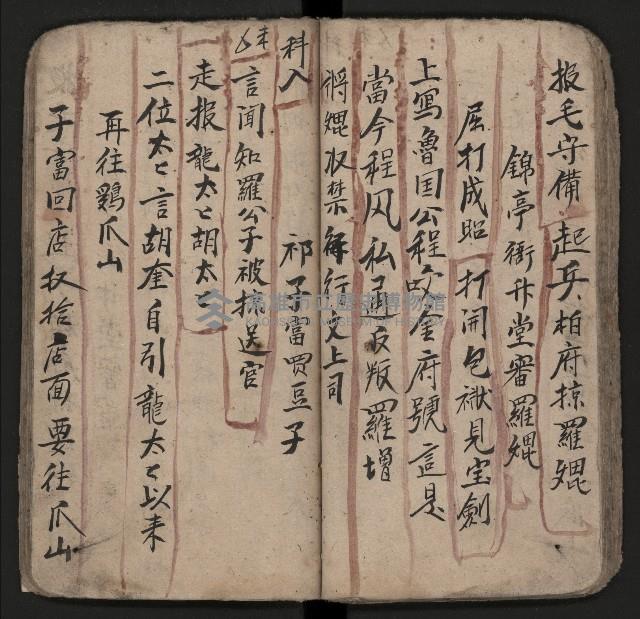 报毛守備 起兵、柏府掠羅焜
錦亭衙升堂審羅焜
屈打成昭 打開包袱見宝劍
上寫魯国公程 金府號這是
當今程凤私通反叛羅增
將焜収禁 行文上司
科入 祁子富買豆子
末
言聞知羅公子被掠送官
走报龍太々胡太々
二位太々言胡奎自引龍太々以来
再往鷄爪山
子富回店収拾店面要往爪山
高雄市立歷史博物館
KAOHSIUNG MUSEUM OF HISTORY